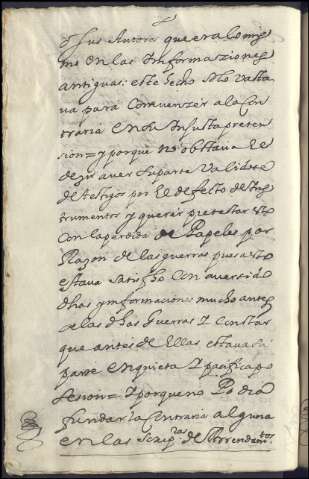 o sus Autores que era lo mis
mo en las Informaziones
antiguas; este hecho solo vasta
va para Convenzer a la Con
traria en su Injusta preten
sion= y porque no obstava el
dezir aver su parte Validose
de testigos por el defecto de Ins
trumentos y querer pretestar esto
Con la perdida de Papeles por
Razon de las guerras pues a esto
estava satisfho con averse
dhas ynformaciones mucho antes
de las dhas Guerras Y Constar
que antes de ellas estava su
parte en quieta Y pacifica po
sesion= Y porque no Podia
fundar la Contraria alguna
en las Scrip.ras de Arrendam.tos